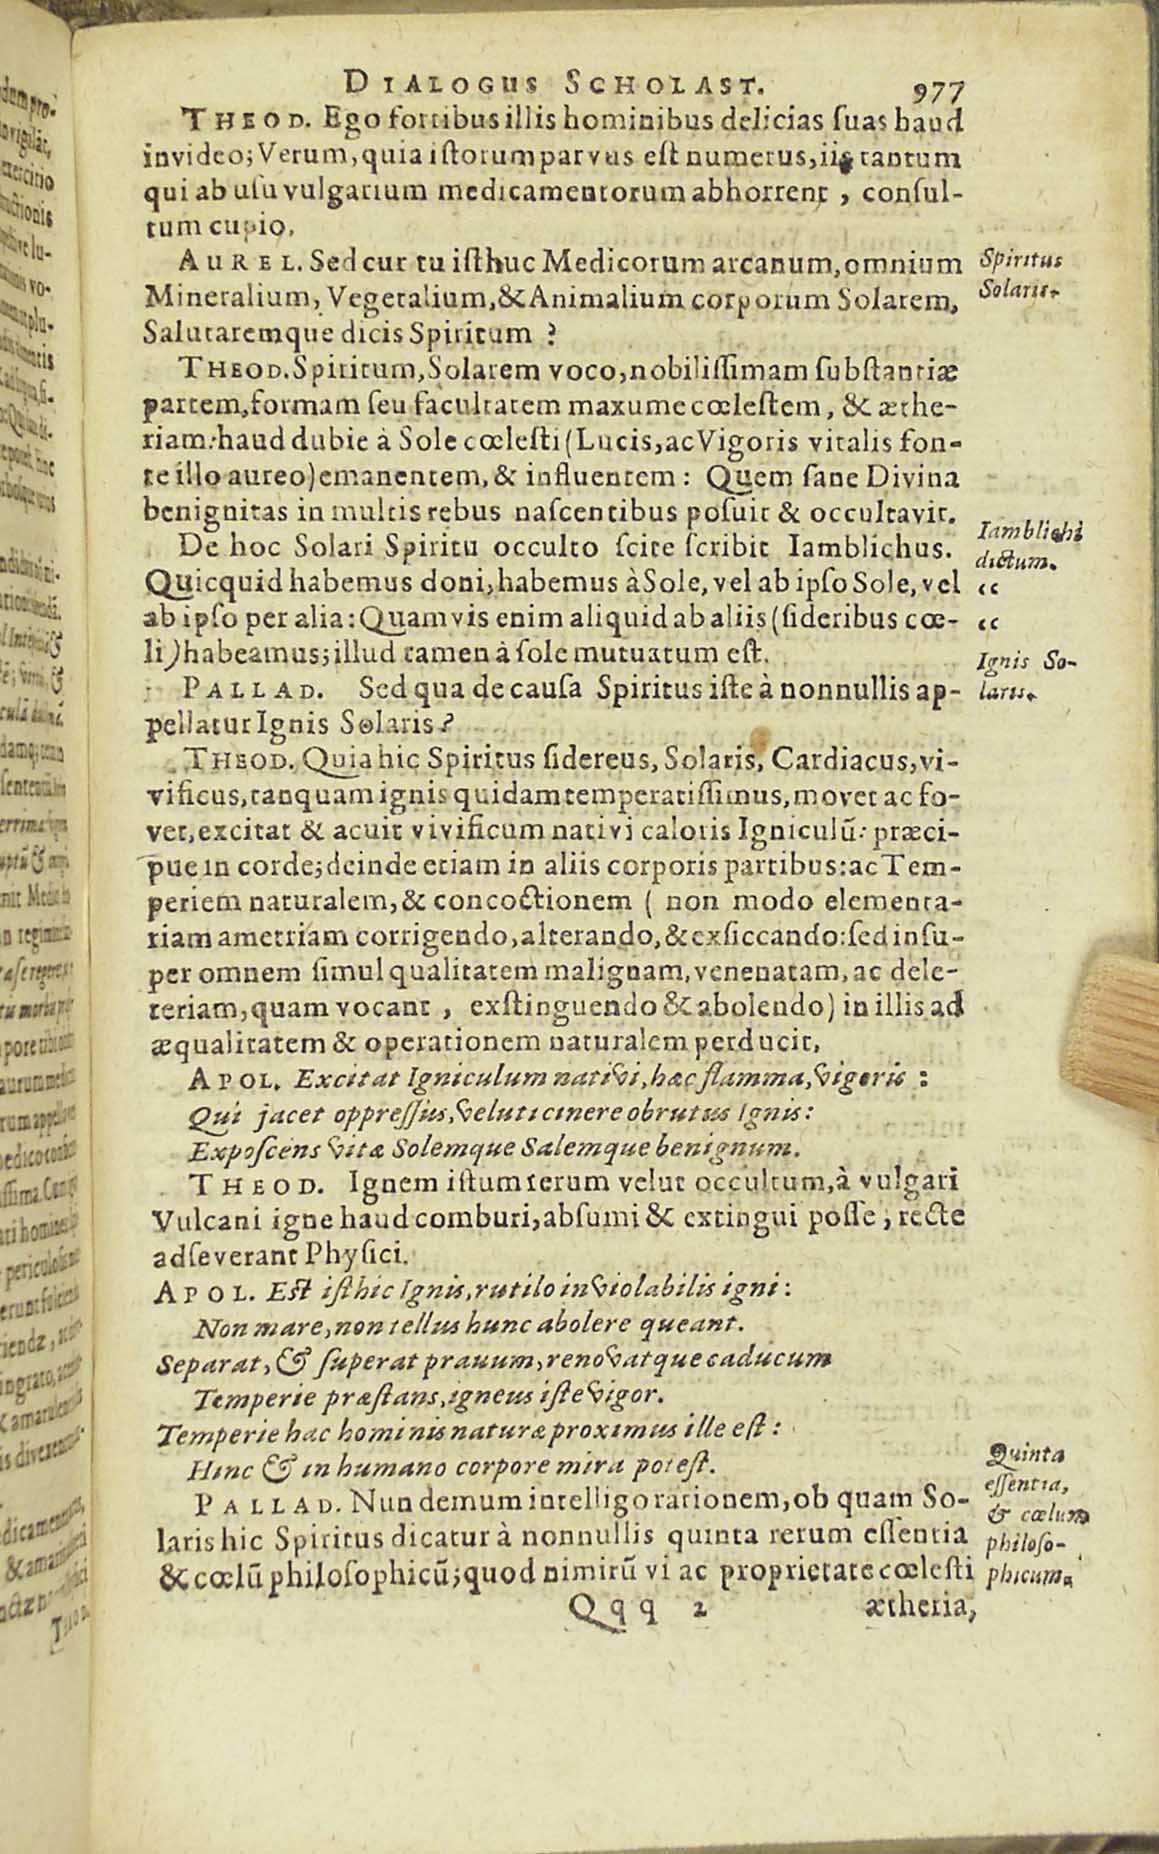 DIALOGUS SCHOLAST. 977
THEOD. Ego fortibus illis hominibus delicias suas haud
invideo; Verum, quia istorum parvus est numerus, iis tantum
qui ab usu vulgarium medicamentorum abhorrent, consul-
tum cupio.
AUREL. Sed cur tu isthuc Medicorum arcanum, omnium
Mineralium, Vegetalium, & Animalium corporum Solarem,
Salutaremque dicis Spiritum?
Spiritus
Solaris.
THEOD. Spiritum, Solarem voco, nobilissimam substantiæ
partem, formam seu facultatem maxume cœlestem, & æthe-
riam: haud dubie à Sole cœlesti (Lucis, ac Vigoris vitalis fon-
te illo aureo) emanentem, & influentem: Quem sane Divina
benignitas in multis rebus nascentibus posuit & occultavit.
De hoc Solari Spiritu occulto scite scribit Iamblichus.
Quicquid habemus doni, habemus à Sole, vel ab ipso Sole, vel
ab ipso per alia: Quamvis enim aliquid ab aliis (sideribus cœ-
li) habeamus; illud tamen à sole mutuatum est.
Iamblichi
dictum.
“
“
PALLAD. Sed qua de causa Spiritus iste à nonnullis ap-
pellatur Ignis Solaris?
Ignis So-
laris.
THEOD. Quia hic Spiritus sidereus, Solaris, Cardiacus, vi-
vificus, tanquam ignis quidam temperatissimus, movet ac fo-
vet, excitat & acuit vivificum nativi caloris Igniculū: præci-
pue in corde; deinde etiam in aliis corporis partibus: ac Tem-
periem naturalem, & concoctionem ( non modo elementa-
riam ametriam corrigendo, alterando, & exsiccando: sed insu-
per omnem simul qualitatem malignam, venenatam, ac dele-
teriam, quam vocant, exstinguendo & abolendo) in illis ad
æqualitatem & operationem naturalem perducit.
APOL. Excitat Igniculum nativi, hæc flamma, vigoris:
Qui jacet oppressus, veluti cinere obrutus Ignis:
Exposcens vitæ Solemque Salemque benignum.
THEOD. Ignem istum rerum velut occultum, à vulgari
Vulcani igne haud comburi, absumi & extingui posse, recte
adseverant Physici.
APOL. Est isthic Ignis, rutilo inviolabilis igni:
Non mare, non tellus hunc abolere queant.
Separat, & superat prauum, renovatque caducum
Temperie præstans, igneus iste vigor.
Temperie hac hominis naturæ proximus ille est:
Hinc & in humano corpore mira potest.
PALLAD. Nun demum intelligo rationem, ob quam So-
laris hic Spiritus dicatur à nonnullis quinta rerum essentia
& cœlū philosophicū; quod nimirū vi ac proprietate cœlesti
Quinta
essentia,
& cœlum
philoso-
phicum.
Qqq 2 ætheria,